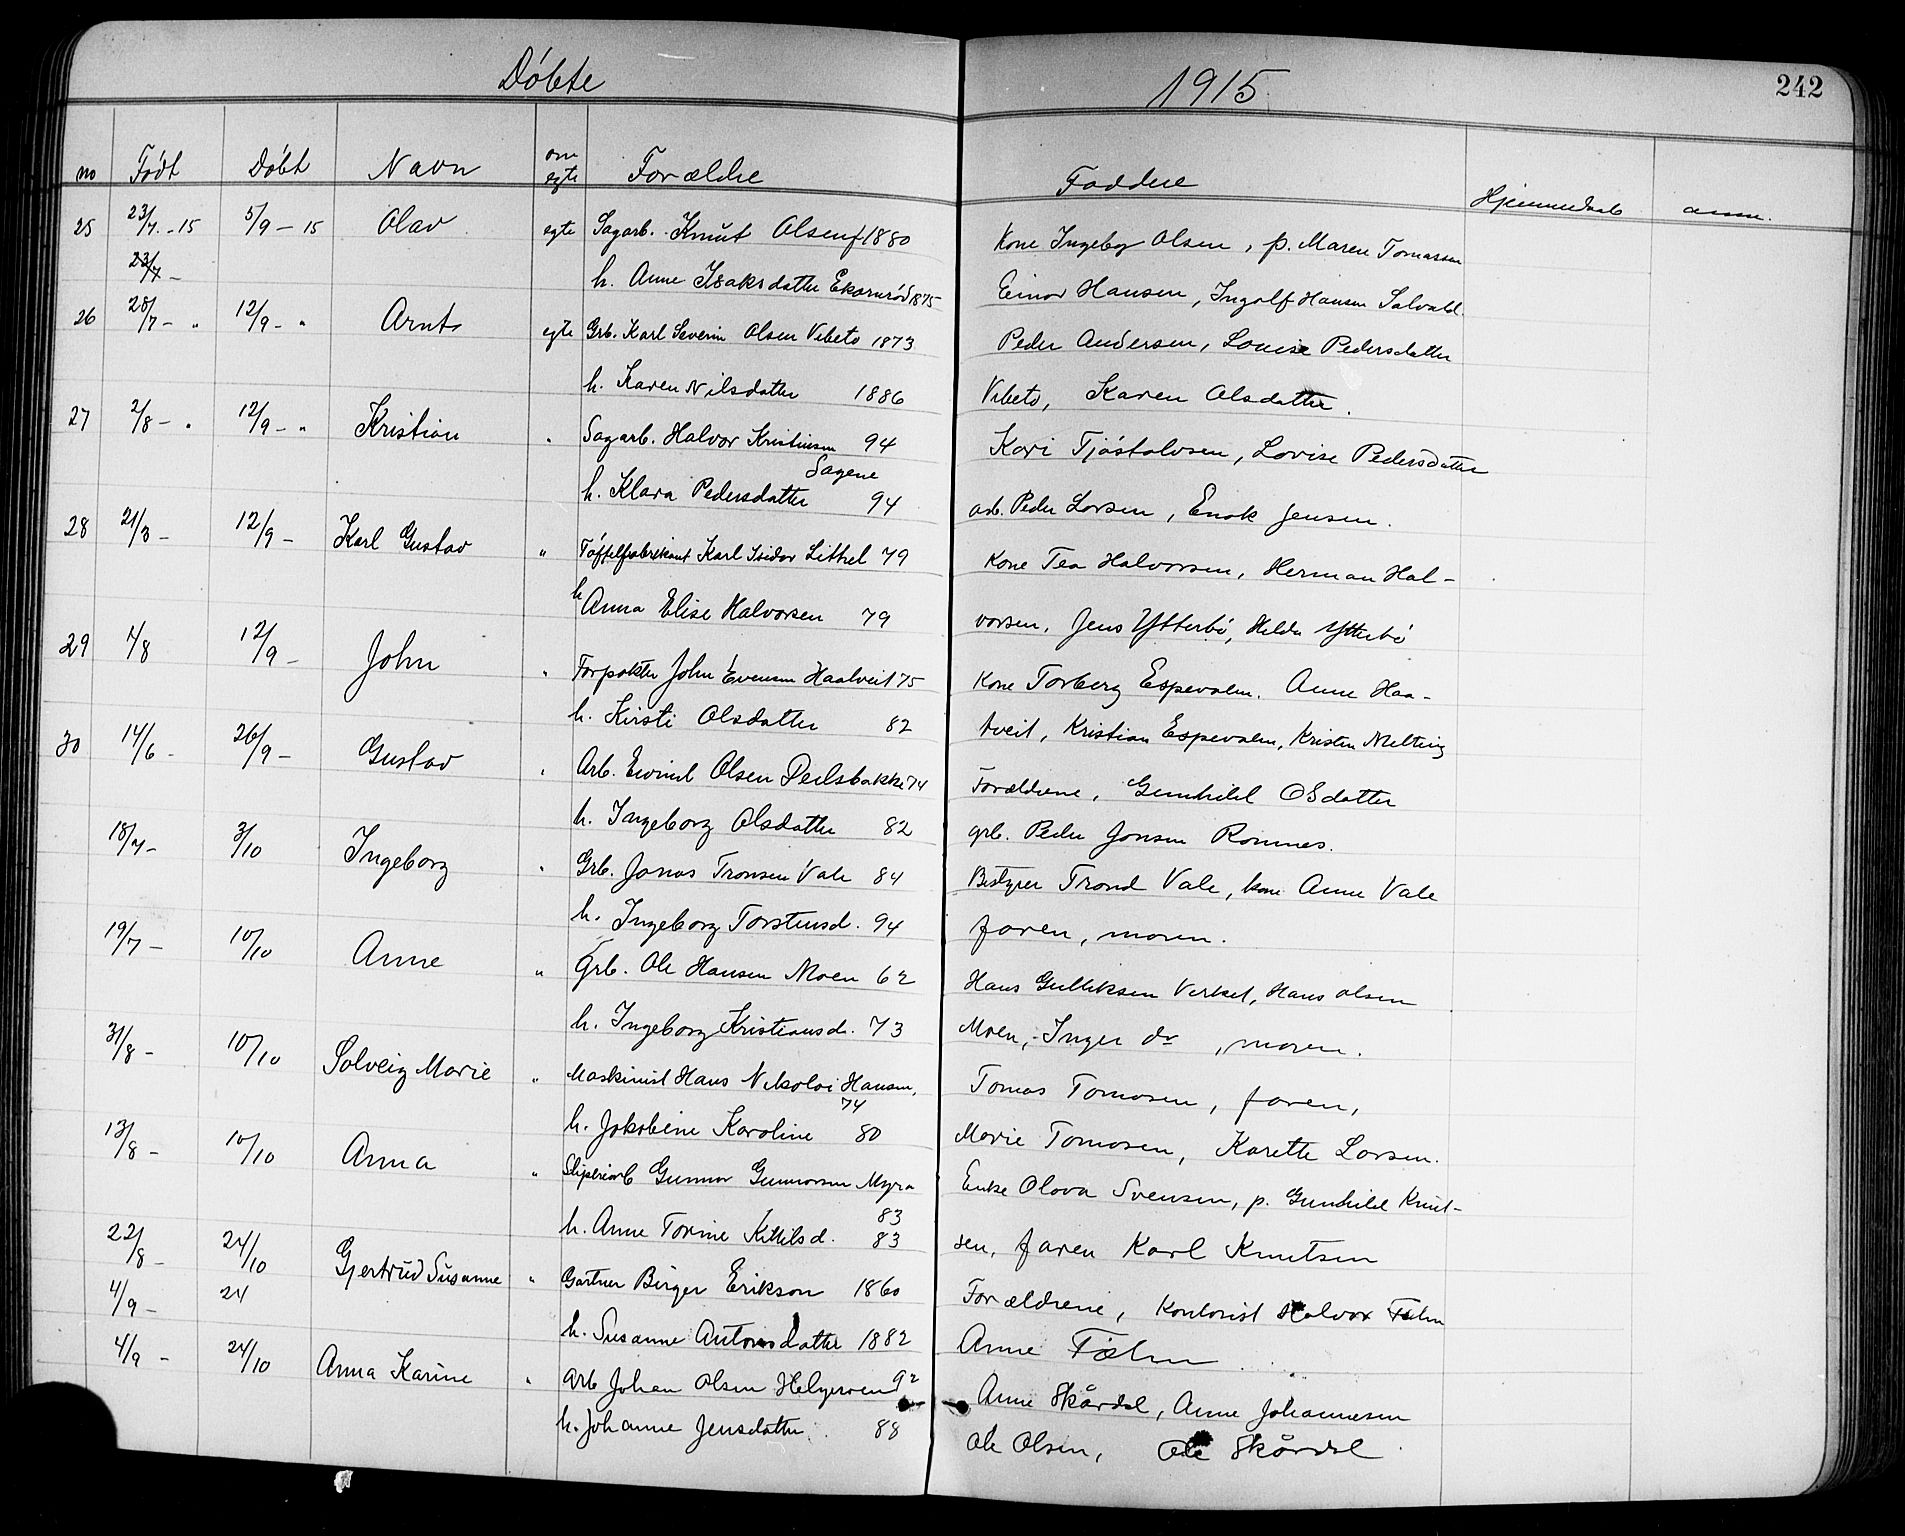 Döbte 1915 242
no Födt Döbt Navn om egte Forældre Faddere Hjemmedaab anm.
25 23/7.-15 5/9-15 Olav egte Sagarb. Knut Olsen f 1880 Kone Ingeborg Olsen, p. Maren Tomassen
23/7- h. Anne Isaksdatter Ekornröd 1875 Einar Hansen, Ingolf Hansen
26 28/7- " 12/9- " Arnt egte Grb. Karl Severin Olsen Vibeto 1873 Peder Andersen, Louise Pedersdatter
h. Karen Nilsdatter 1886 Vibeto, Karen Olsdatter.
27 2/8- " 12/9- " Kristian " Sagarb. Halvor Kristiansen 94 Kari Tjöstolvsen, Lovise Pedersdatter
Sagene
h. Klara Pedersdatter 94 arb. Peder Larsen, Enok Jensen.
28 21/3- 12/9- Karl Gustav " Töffelfabrikant Karl Isidor Littrel 79 Kone Tea Halvorsen, Herman Hal-
h Anna Elise Halvorsen 79 vorsen, Jens Ytterbö, Hilda Ytterbö
29 1/8 12/9- John " Forpakter John Evensen Haatveit 75 Kone Torberg Espevalen. Anne Haa-
h. Kirsti Olsdatter 82 tveit, Kristian Espevalen, Kristen Melteig
30 14/6- 26/9- Gustav " Arb. Eivind Olsen Deilsbakke 74 Forældrene, Gunhild Olsdatter
h. Ingeborg Olsdatter 82 grb. Peder Jonsen Romnes.
18/7- 3/10 Ingeborg " Grb. Jonas Tronsen Vale 84 Bestyrer Trond Vale, kone Anne Vale
h. Ingeborg Torsteinsd. 94 faren, moren.
19/7- 10/10 Anne " Grb. Ole Hansen Moen 62 Hans Gulliksen Virket, Hans Olsen
h. Ingeborg Kristiansd. 73 Moen, Inger do, moren.
31/8- 10/10 Solveig Marie " Maskinist Hans Nikolai Hansen, Tomas Tomasen, faren,
74
h. Jakobine Karoline 80 Marie Tomasen, Karette Larsen.
13/8- 10/10 Anna " Sliperiarb Gunnar Gunnarsen Myra Enke Olava Svensen, p. Gunhild Knut-
83
h. Anne Torine Kittilsd. 83 sen, faren Karl Knutsen
22/8- 24/10 Gjertrud Susanne " Gartner Birger Erikson 1860 Forældrene, Kontorist Halvor Tolm
4/9- 24 h. Susanne Antonsdatter 1882 Anne Tolm
4/9- 24/10 Anna Karine " Arb Johan Olsen Helgeroend 92 Anne Skårdal, Anne Johannesen
h. Johanne Jensdatter. 88 Ole Olsen, Ole Skårdal